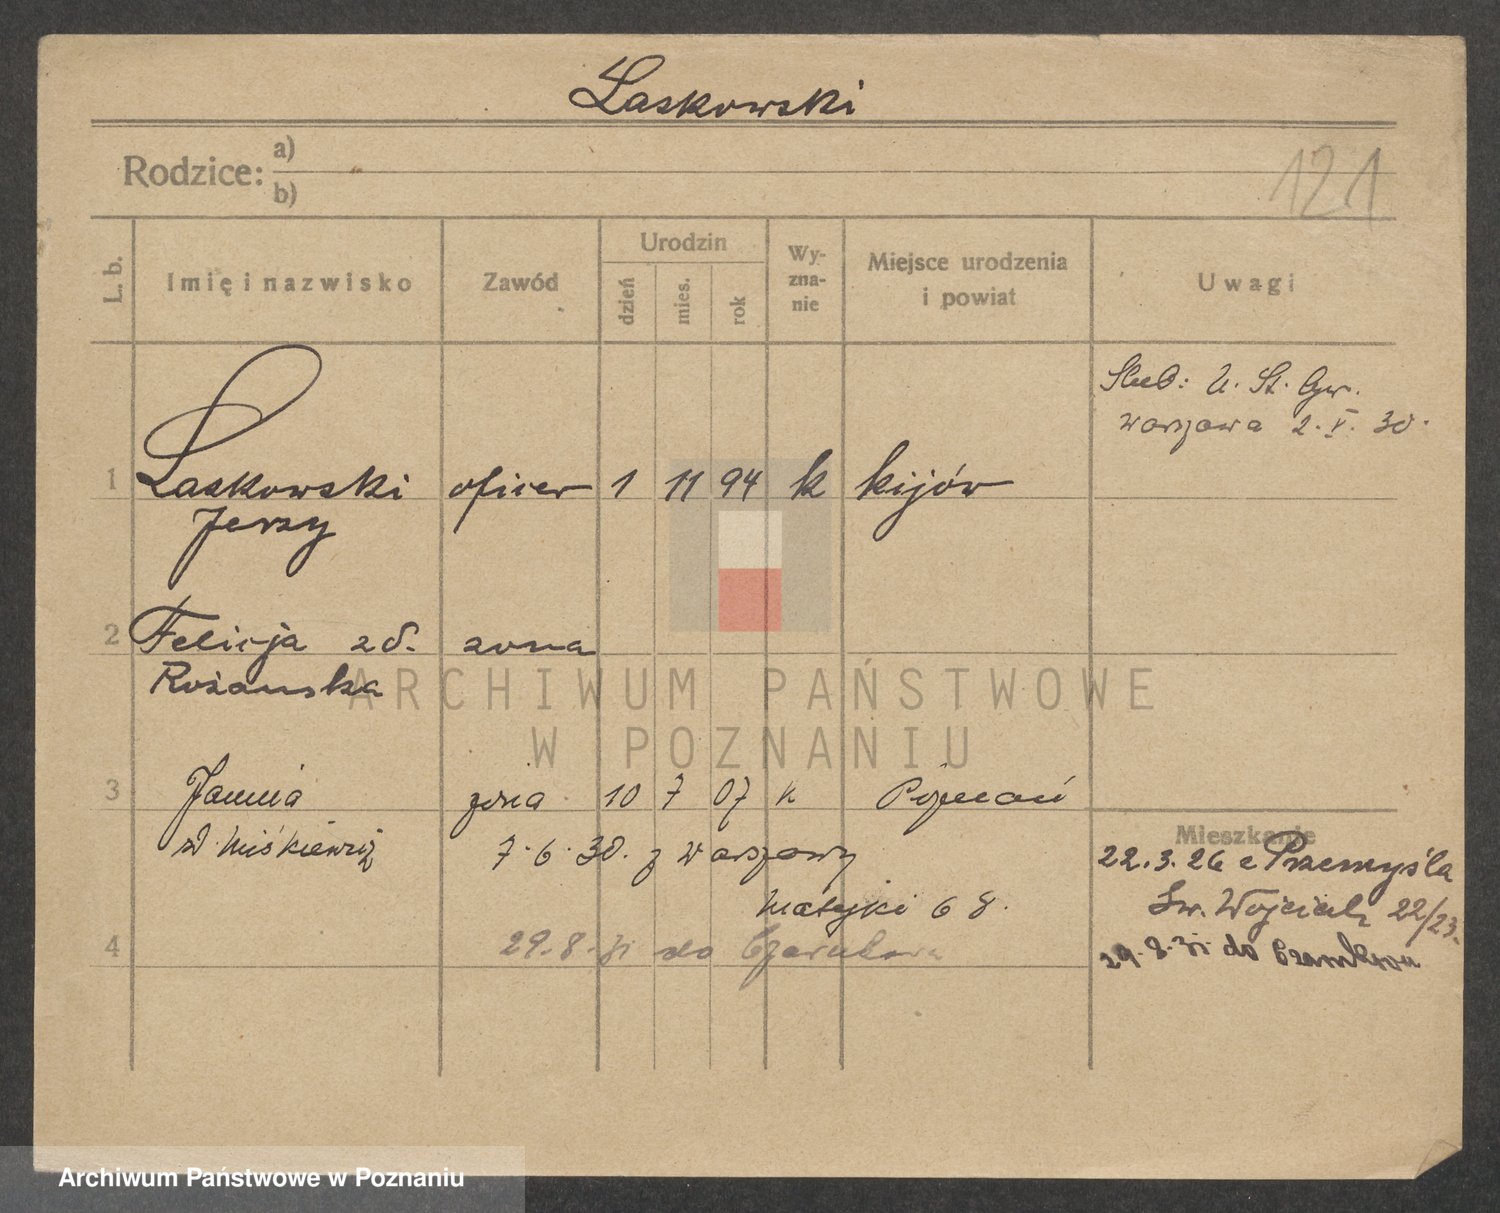 Laskowski
Rodzice: a)
b)
121
L. b.
Imię i nazwisko
Zawód
Urodzin
dzień
mies.
rok
Wy-
zna-
nie
Miejsce urodzenia
i powiat
Uwagi
Ślub: U. St. Cyw.
Warszawa 2. V. 30.
1 Laskowski oficer 1 11 94 k Kijów
Jerzy
2 Felicja zd. żona
Rożańska
ARCHIWUM PAŃSTWOWE
W POZNANIU
3 Janina żona 10 7 07 k Poznań
zd. Miśkiewicz 7.6.30. z Warszawy
Matejki 68.
Mieszkanie
22.3.26 z Przemyśla
Św. Wojciech 22/23.
4 29.8.31 do Czarnkowa
29.8.31 do Czarnkowa
Archiwum Państwowe w Poznaniu